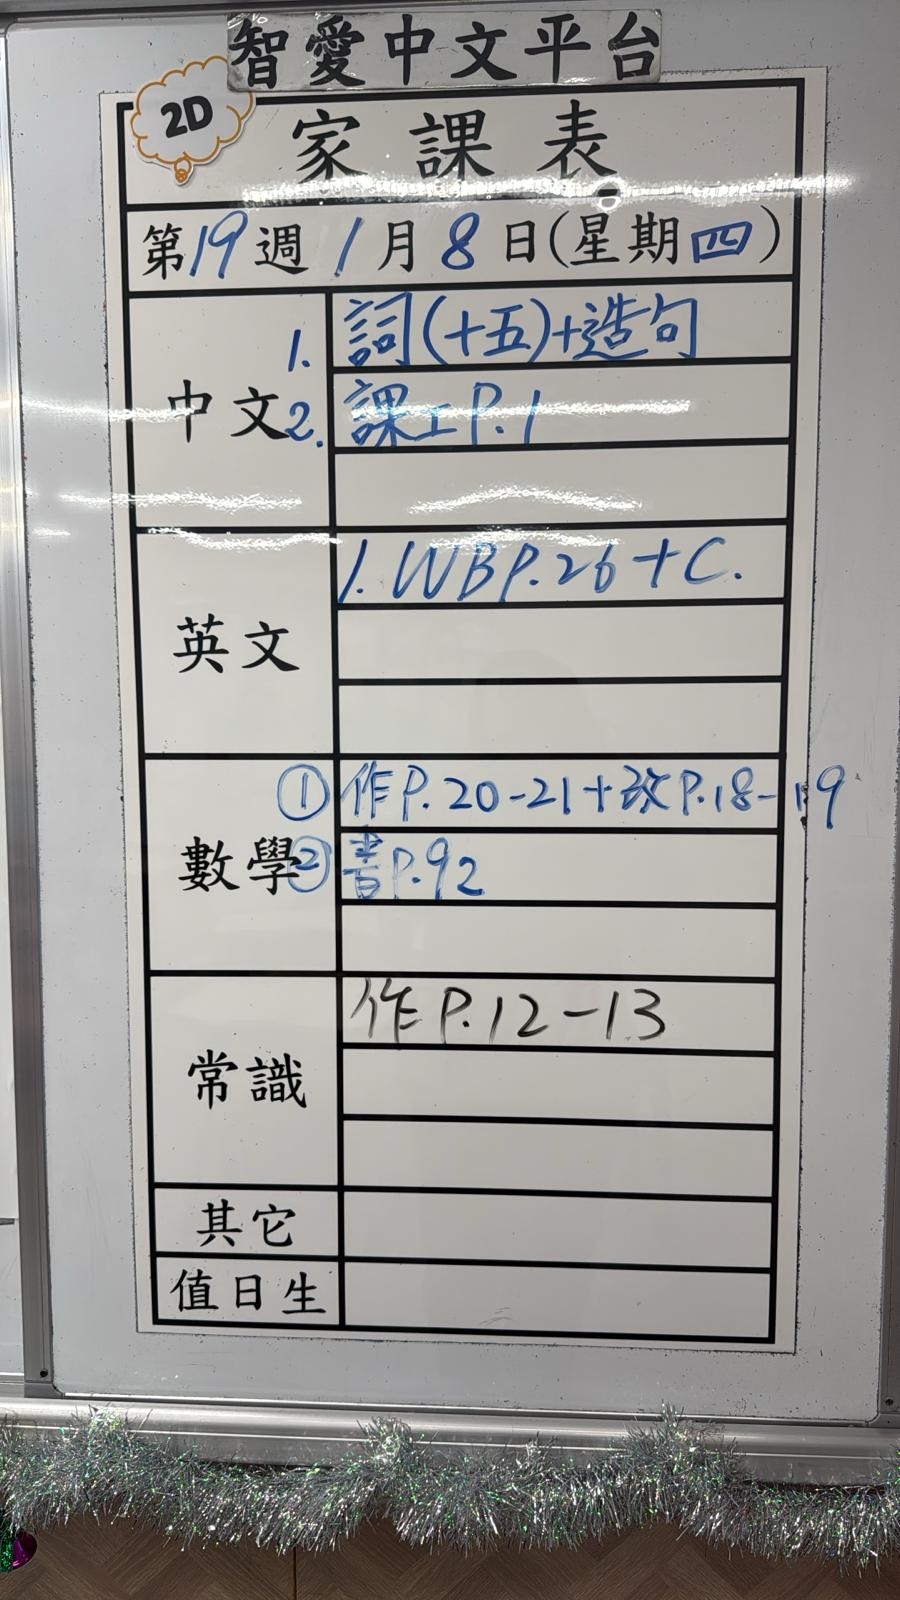 智愛中文平台
2D
家課表
第19週 1月8日(星期四)
中文
1. 詞(十五)+造句
2. 課工P.1
英文
1. WB P.26+C.
數學
① 作P.20-21+改P.18-19
② 書P.92
常識
作P.12-13
其它
值日生